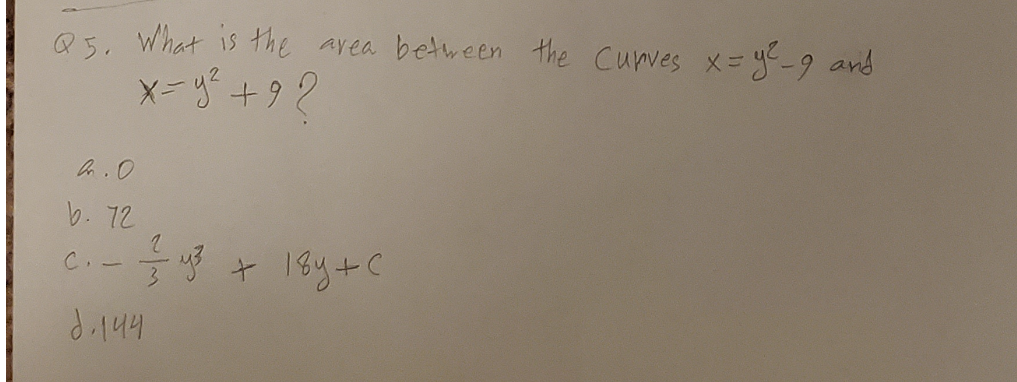 Q5. What is the area between the curves x=y²-9 and
x=y²+9?
a. 0
b. 72
c. - 2/3 y³ + 18y+C
d. 144